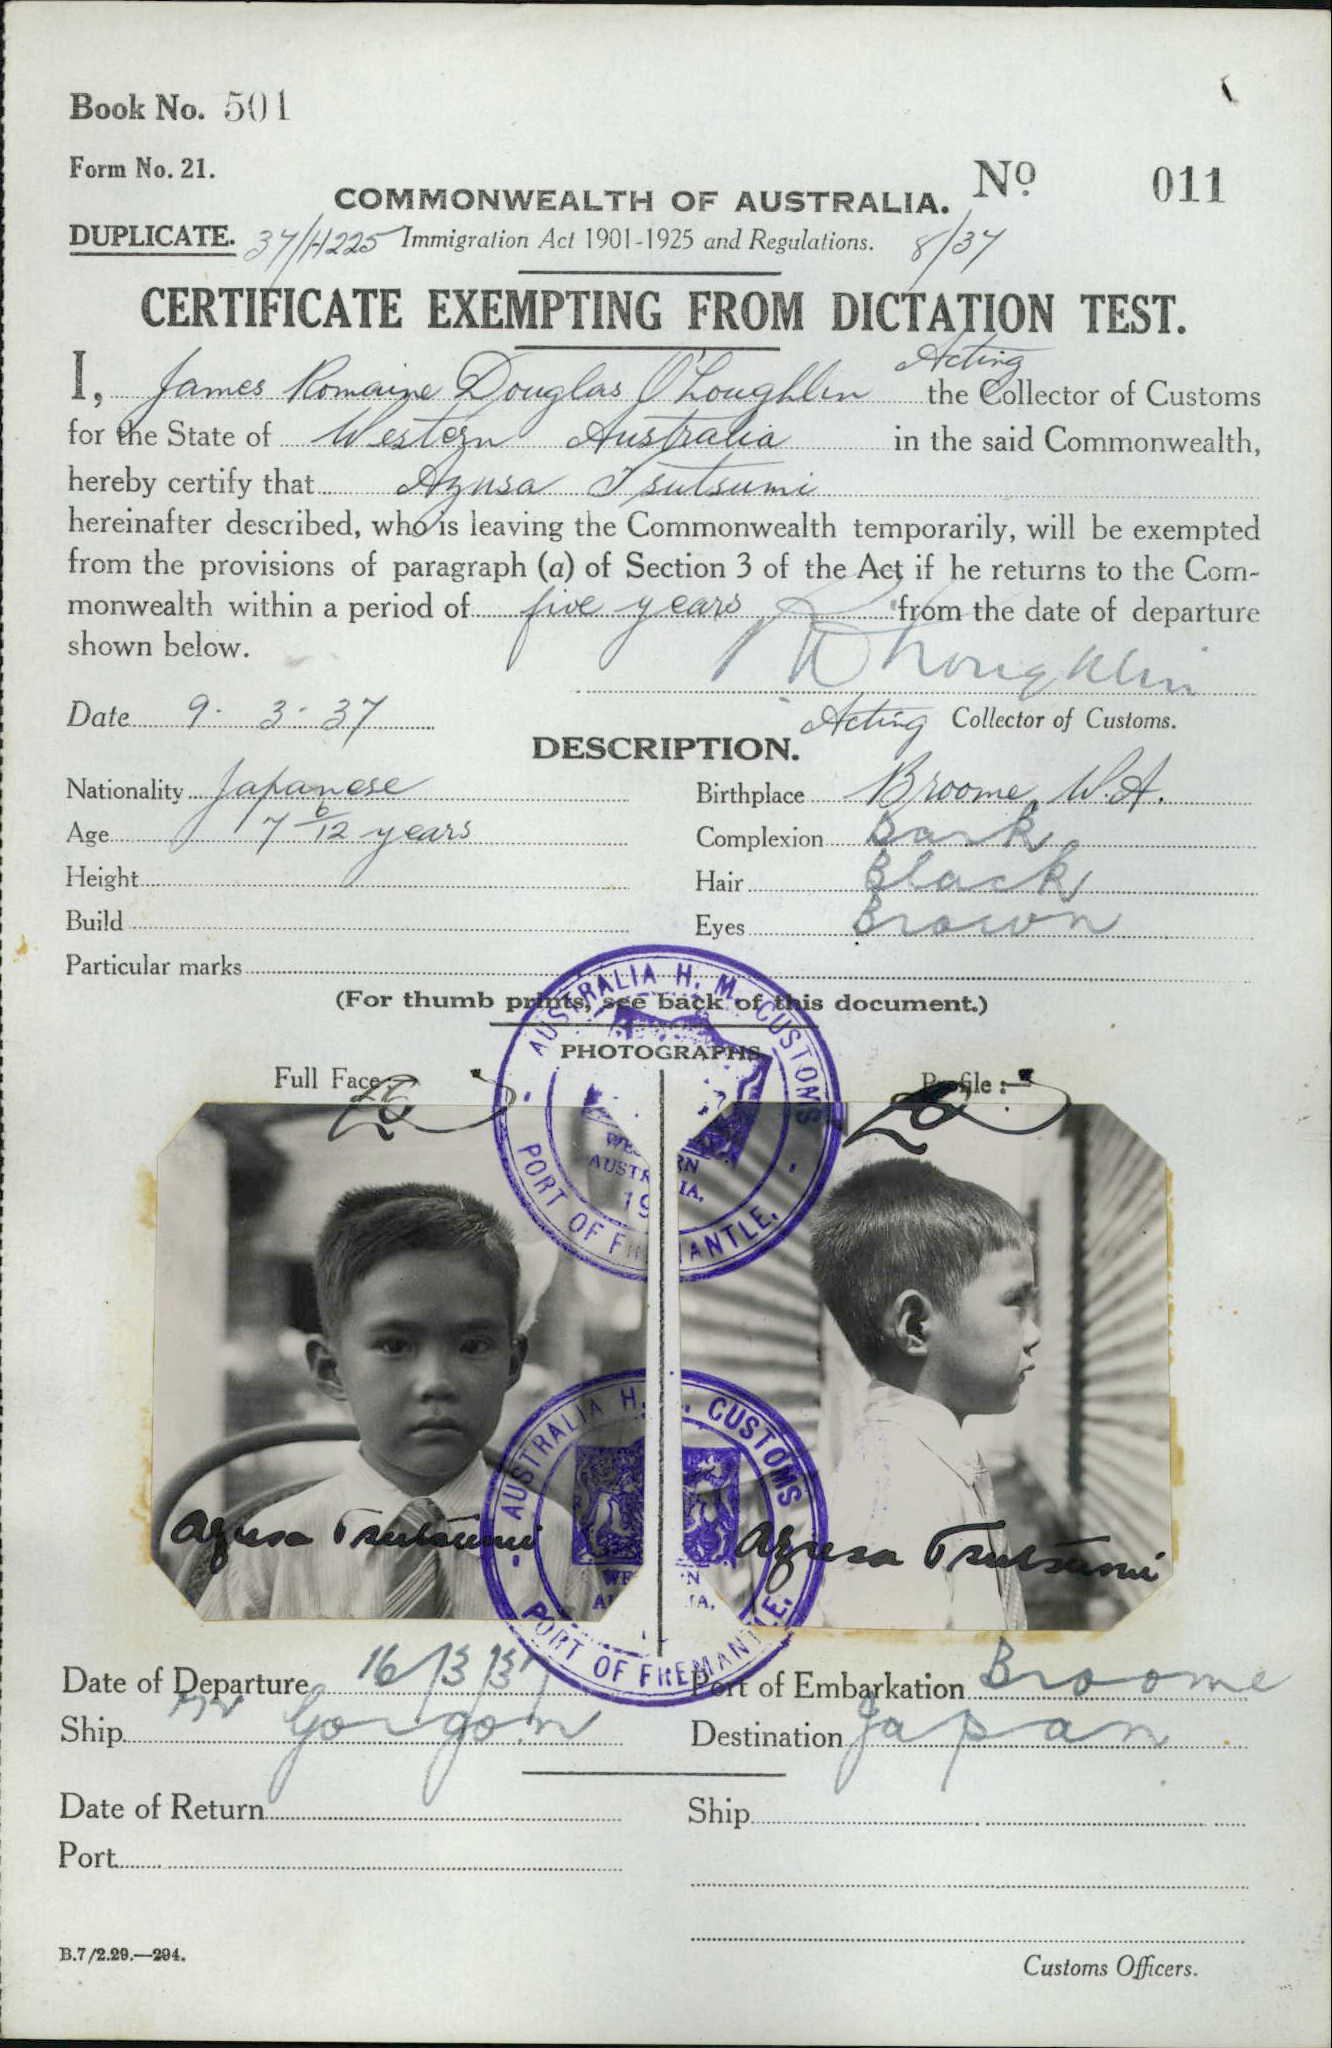 Book No. 501
Form No. 21.
No 011
COMMONWEALTH OF AUSTRALIA.
DUPLICATE. 37/H225 Immigration Act 1901-1925 and Regulations. 8/37
CERTIFICATE EXEMPTING FROM DICTATION TEST.
Acting
I, James Romaine Douglas O'Loughlin the Collector of Customs
for the State of Western Australia in the said Commonwealth,
hereby certify that Azusa Tsutsumi
hereinafter described, who is leaving the Commonwealth temporarily, will be exempted
from the provisions of paragraph (a) of Section 3 of the Act if he returns to the Com-
monwealth within a period of five years from the date of departure
shown below.
O'Loughlin
Date 9. 3. 37 Acting Collector of Customs.
DESCRIPTION.
Nationality Japanese Birthplace Broome, W.A.
Age 7 6/12 years Complexion Dark
Height Hair Black
Build Eyes Brown
Particular marks
(For thumb prints, see back of this document.)
PHOTOGRAPHS
Full Face: Profile:
AUSTRALIA H. M. CUSTOMS
WESTERN
AUSTRALIA.
19
PORT OF FREMANTLE.
AUSTRALIA H. M. CUSTOMS
WESTERN
AUSTRALIA.
PORT OF FREMANTLE.
Azusa Tsutsumi Azusa Tsutsumi
Date of Departure 16/3/37 Port of Embarkation Broome
Ship mv Gorgon Destination Japan
Date of Return Ship
Port
B.7/2.29.—294.
Customs Officers.